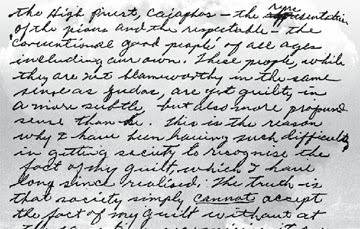 the High Priest, Caiaphas - the representation
of the pious and the respectable - the
'conventional good people' of all ages
including our own. These people, while
they are not blameworthy in the same
sense as Judas, are yet guilty in
a more subtle, but also more profound
sense than he. This is the reason
why I have been having such difficulty
in getting society to recognise the
fact of my guilt, which I have
long since realised; The truth is
that society simply cannot accept
the fact of my guilt without at